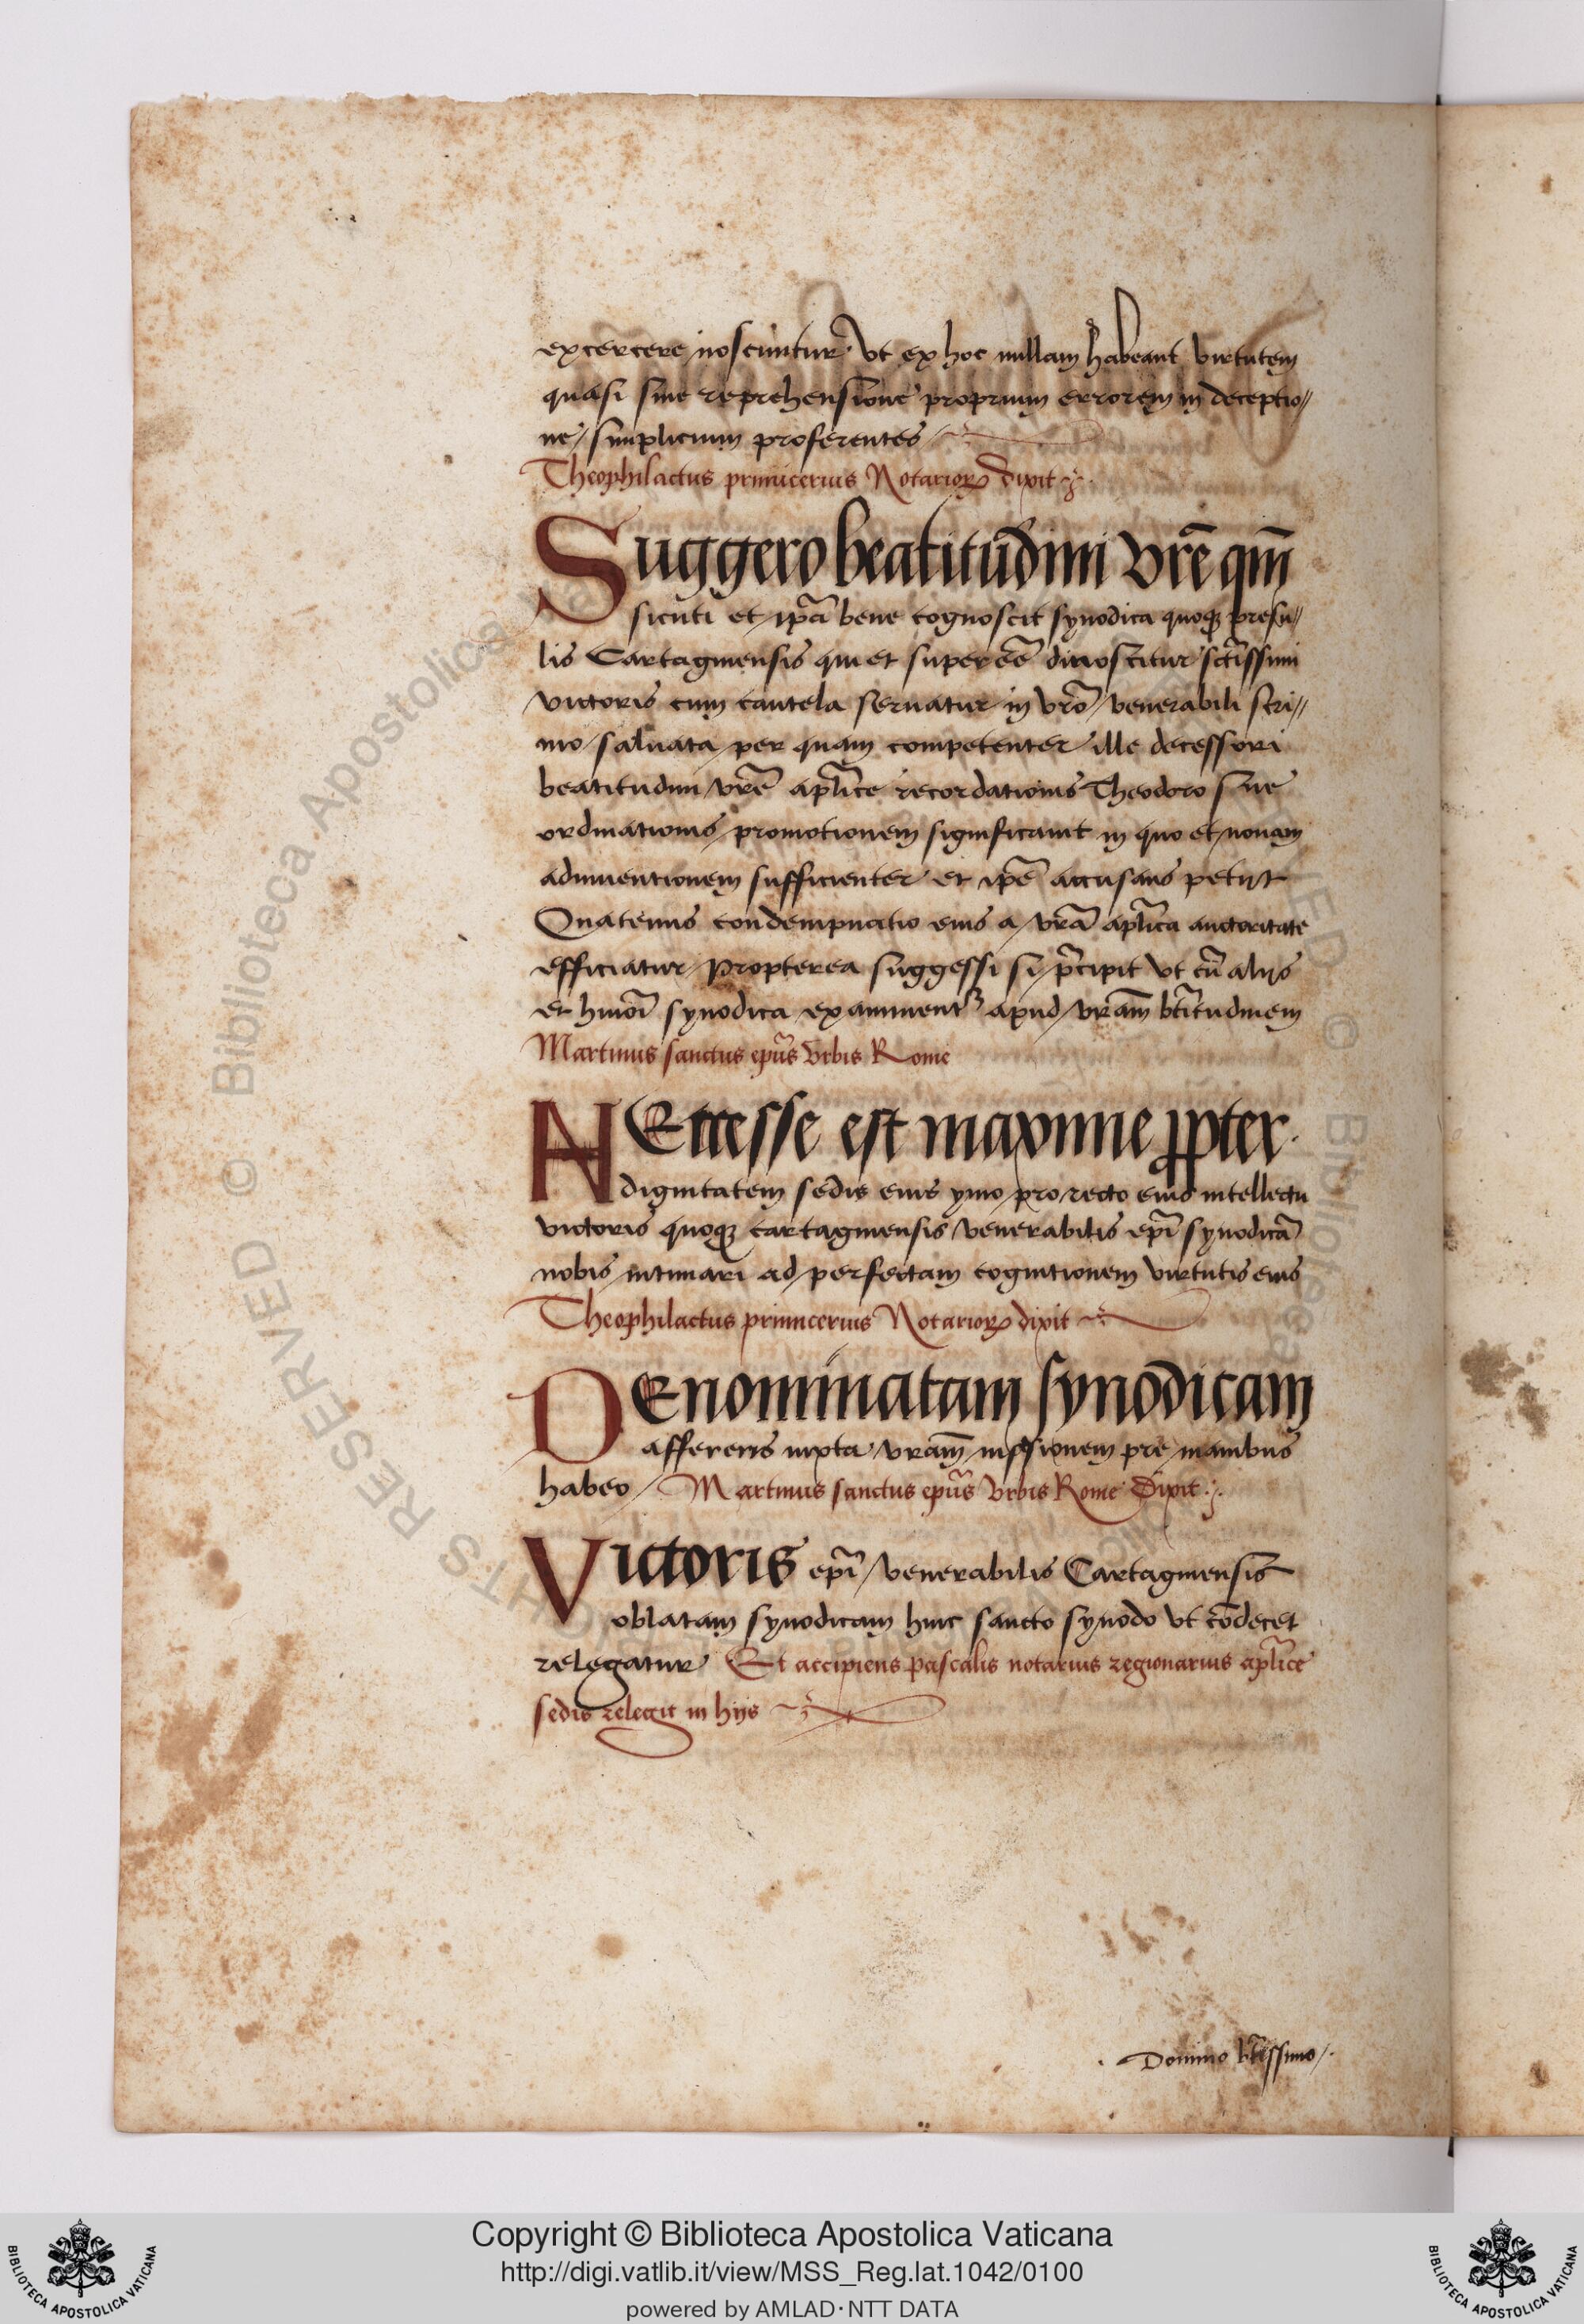 excercere noscuntur. Vt ex hoc nullam habeant virtutem
quasi sine reprehensione proprium errorem in deceptio//
ne simplicium proferentes
Theophilactus primicerius Notarioꝝ dixit
Suggero beatitudini vr̄e qm̄
sicuti et ip̄a bene cognoscit synodica quoqꝫ presu//
lis Cartaginensis qui et super eē dinoscitur sct̄issimi
victoris cum cautela seruatur in vr̄o venerabili scri//
nio saluata per quam competenter ille decessori
beatitudini vr̄e apl̄ice recordationis Theodoro sue
ordinationis promotionem significauit in quo et nouam
adinuentionem sufficienter et ip̄e accusans petijt
Quatenus condempnatio eius a vr̄a apl̄ica auctoritate
efficiatur Propterea suggessi si p̄cipit vt cū alijs
et hm̄oi synodica examinent᷑ apud vr̄am bt̄itudinem
Martinus sanctus ep̄us vrbis Rome
NEcesse est maxime ꝓpter
dignitatem sedis eius ymo pro recto eius intellectu
victoris quoqꝫ cartaginensis venerabilis ep̄i synodicā
nobis intimari ad perfectam cognitionem virtutis eius
Theophilactus primicerius Notarioꝝ dixit
DEnominatam synodicam
afferens iuxta vr̄am iussionem pre manibus
habeo Martinus sanctus ep̄us vrbis Rome Dixit
Victoris ep̄i venerabilis Cartaginensis
oblatam synodicam huic sancto synodo vt cōdecet
relegatur Et accipiens pascalis notarius regionarius apl̄ice
sedis relegit in hijs
. Domino bt̄issimo /.
© Biblioteca Apostolica Vaticana
RIGHTS RESERVED
Copyright © Biblioteca Apostolica Vaticana
http://digi.vatlib.it/view/MSS_Reg.lat.1042/0100
powered by AMLAD·NTT DATA
BIBLIOTECA APOSTOLICA VATICANA
BIBLIOTECA APOSTOLICA VATICANA